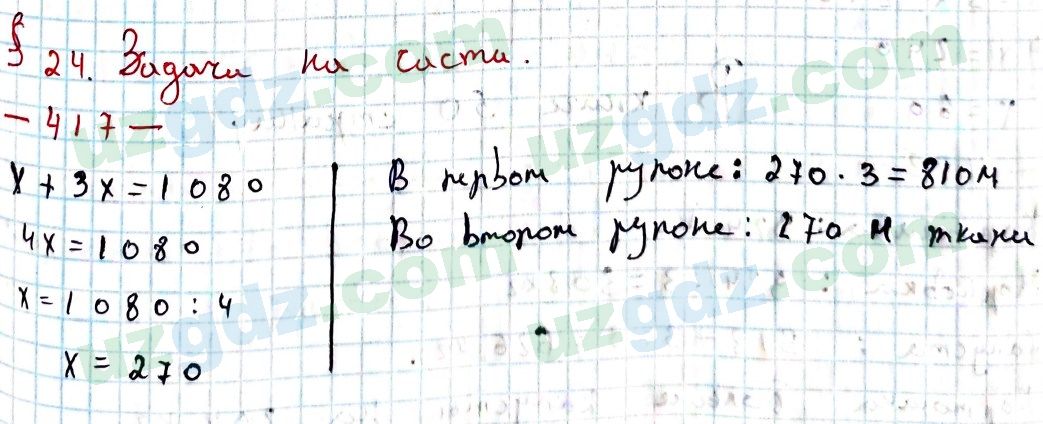 § 24. Задачи на части.
— 417 —
x + 3x = 1080
4x = 1080
x = 1080 : 4
x = 270
В первом рулоне: 270 · 3 = 810 м
Во втором рулоне: 270 м ткани
uzgdz.com
uzgdz.com
uzgdz.com
uzgdz.com